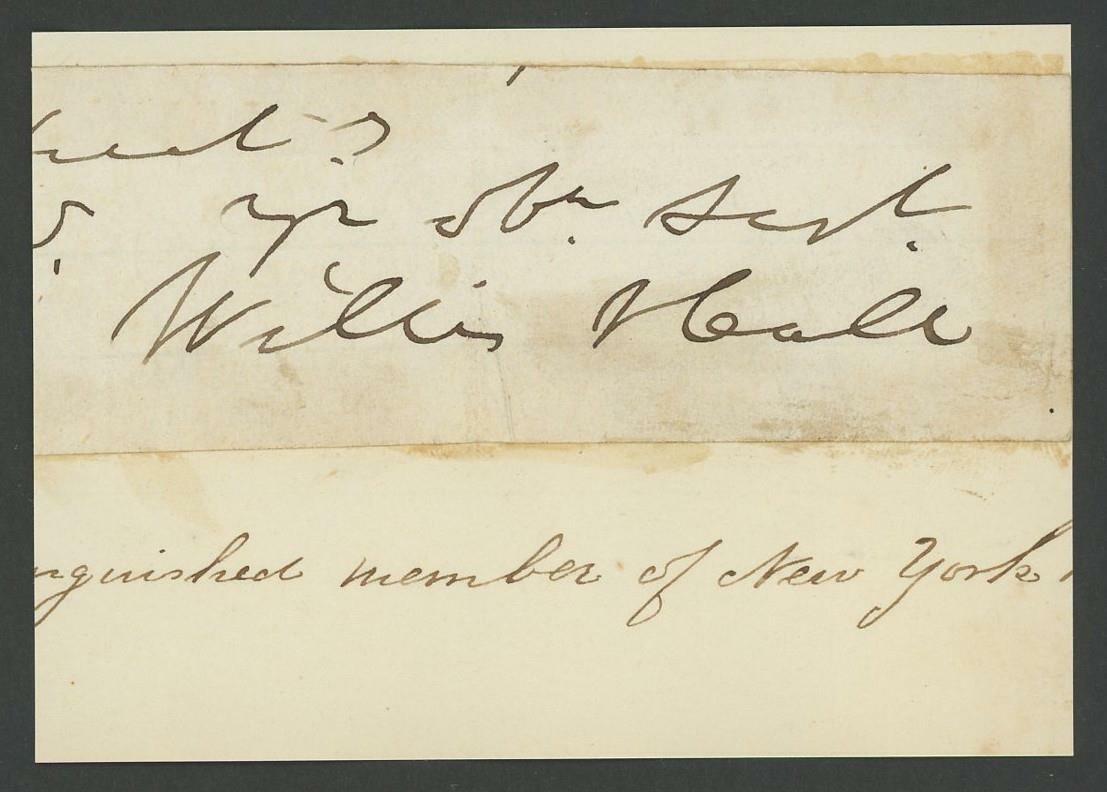 yr ob. Sert.
Willis Hall
nguished member of New York